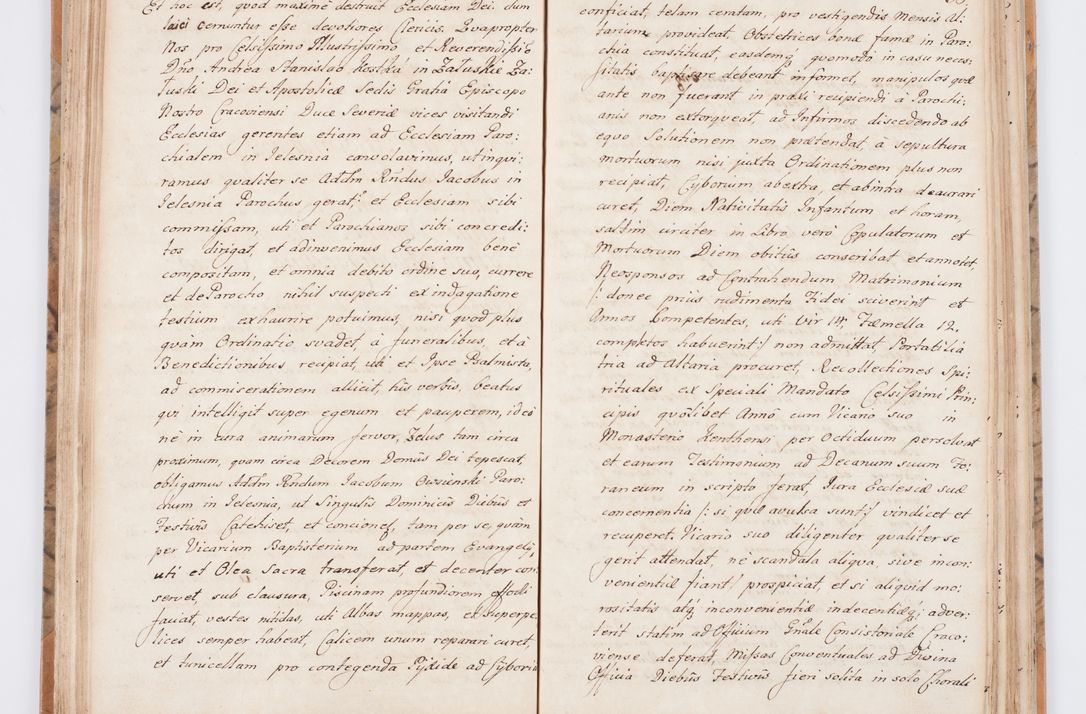 Et hoc est, quod maximè destruit Ecclesiam Dei: dum
laici cernuntur esse devotiores Clericis. Quapropter
Nos pro Celsissimo Illustrissimo et Reverendissio
Dño, Andrea Stanislao Kostka in Załuskie Za:
łuski Dei et Apostolicæ Sedis Gratiâ Episcopo
Nostro Cracoviensi Duce Severiæ vices visitandi
Ecclesias gerentes etiam ad Ecclesiam Paro:
chialem in Jelesnia condavimus, ut inqui:
ramus qualiter se Adtm Rñdus Jacobus in
Jelesnia Parochus gerat, et Ecclesiam sibi
commissam, uti et Parochianos sibi concredi:
tos dirigat, et adinvenimus Ecclesiam benè
compositam, et omnia debito ordine suo, currere
et de Parocho nihil suspecti ex indagatione
testium exhaurire potuimus, nisi quod plus
quam Ordinatio svadet, à funeralibus, et à
Benedictionibus recipiat, uti et Ipse Psalmista,
ad commiserationem allicit, his verbis, beatus
qui intelligit super egenum et pauperem, id eò
nè in cura animarum fervor, Zelus tam circa
proximum, quam circa Decorem Domûs Dei tepescat,
obligamus Adtm Rñdum Jacobum Owsinski Paro:
chum in Jelesnia, ut Singulis Dominicis Diebus et
Festivis Catechiset, et concionet, tam per se, quàm
per Vicarium Baptisterium ad partem Evangelij,
uti et Olea Sacra transferat, et decenter con:
servet sub clausura, Piscinam profundiorem effodi
faciat, vestes nitidas, uti Albas mappas, et superpel
lices semper habeat, Calicem unum reparari curet,
et tunicellam pro contegenda Pÿxide ad Cÿboria
conficiat, telam ceratam, pro vestigendis Mensis Al:
tarium provideat, Obstetrices bonæ famæ in Paro:
chia constituat, easdemq; quomodo in casu neces:
sitatis baptisare debeant informet, manipulos quæ
ante non fuerant in praxi recipiendi à Parochi:
anis non extorqueat, ad Infirmos discedendo ab
equo Solutionem non prætendat, à sepultura
mortuorum nisi juxta Ordinationem plus non
recipiat, Cyborium ab extra, et ab intra deaurari
curet, Diem Nativitatis Infantum et horam,
saltim circiter in Libro verò Copulatorum et
Mortuorum Diem obitûs conscribat et annotet,
Neosponsos ad Contrahendum Matrimonium
/: donec priùs rudimenta Fidei sciverint et
Annos Competentes, uti Vir 14, Fæmella 12.
completos habuerint :/ non admittat, Portatilia
tria ad Altaria procuret, Recollectiones Spi:
rituales ex Speciali Mandato Celsissimi Prin:
cipis quôlibet Annô cum Vicario suo in
Monasterio Kenthensi per Octiduum persolvat
et earum Testimonium ad Decanum suum Fo:
raneum in scripto ferat, Jura Ecclesiæ suæ
concernentia /: si quæ avulsa sunt :/ vindicet et
recuperet, Vicario suo diligenter qualiter se
gerit attendat, nè scandala aliqua, sive incon:
venientiæ fiant, prospiciat, et si aliquid mo:
rositatis atq; inconvenientiæ indecentiæq; adver:
terit statim ad Officium Gñale Consistoriale Craco:
viense deferat, Missas Conventuales ad Divina
Officia Diebus Festivis fieri solita in solo Chorali